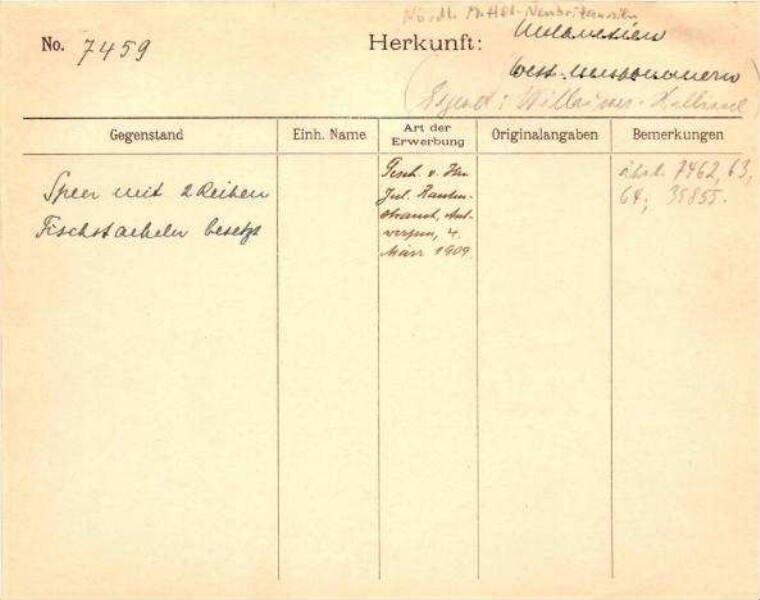 Nördl. Mittel-Neubritannien
No. 7459 Herkunft: Melanesien
West-Neupommern
(Gegend: Willaumez-Halbinsel)
Gegenstand Einh. Name Art der Erwerbung Originalangaben Bemerkungen
Speer mit 2 Reihen
Fischstacheln besetzt
Gesch. v. Hrn
Jul. Rauten-
strauch, Ant-
werpen, 4.
März 1909.
ähnl. 7462, 63,
64; 39855.